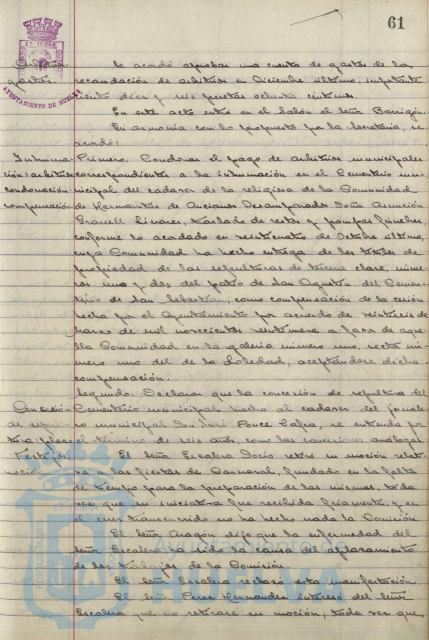 61
AYUNTAMIENTO DE HUELVA
Se acordó aprobar una cuenta de gastos de la
gastos. recaudación de arbitrios en Diciembre último, importante
ciento diez y seis pesetas ochenta céntimos.
En este acto entró en el Salón el Señor Barrigón.
En armonía con lo propuesto por la Secretaría, se
acordó:
Primero. Condonar el pago de arbitrios municipales
correspondientes a la inhumación en el Cementerio mu-
condonación nicipal del cadáver de la religiosa de la Comunidad
compensación de Hermanitas de Ancianos Desamparados Doña Asunción
Linares, traslado de restos y pompas fúnebres,
conforme lo acordado en veinticuatro de Octubre último,
cuya Comunidad ha hecho entrega de los títulos de
propiedad de las sepulturas de tercera clase, núme-
ros uno y dos del patio de San Agustín del Cemen-
terio de San Sebastián, como compensación de la cesión
hecha por el Ayuntamiento por acuerdo de veintiseis de
Marzo de mil novecientos veintinueve a favor de aque-
lla Comunidad en la galería número uno, recto nú-
mero uno del de la Soledad, aceptándose dicha
compensación.
Segundo. Declarar que la concesión de sepultura del
Concesión Cementerio municipal hecha al cadáver del
municipal Don José Ponce se entienda por
el término de seis años, como las concesiones análogas.
Festejos El Señor Escalera Docio retiró su moción relati-
va a las fiestas de Carnaval, fundado en la falta
de tiempo para la preparación de las mismas, toda
vez que su iniciativa fue recibida friamente, y en
el mes transcurrido no ha hecho nada la Comisión
El Señor Aragón dijo que la enfermedad del
Señor Escalera ha sido la causa del aplazamiento
de los trabajos de la Comisión.
El Señor Escalera rechazó esta manifestación
El Señor Perez Hernandez interesó del Señor
Escalera que no retirase su moción, toda vez que